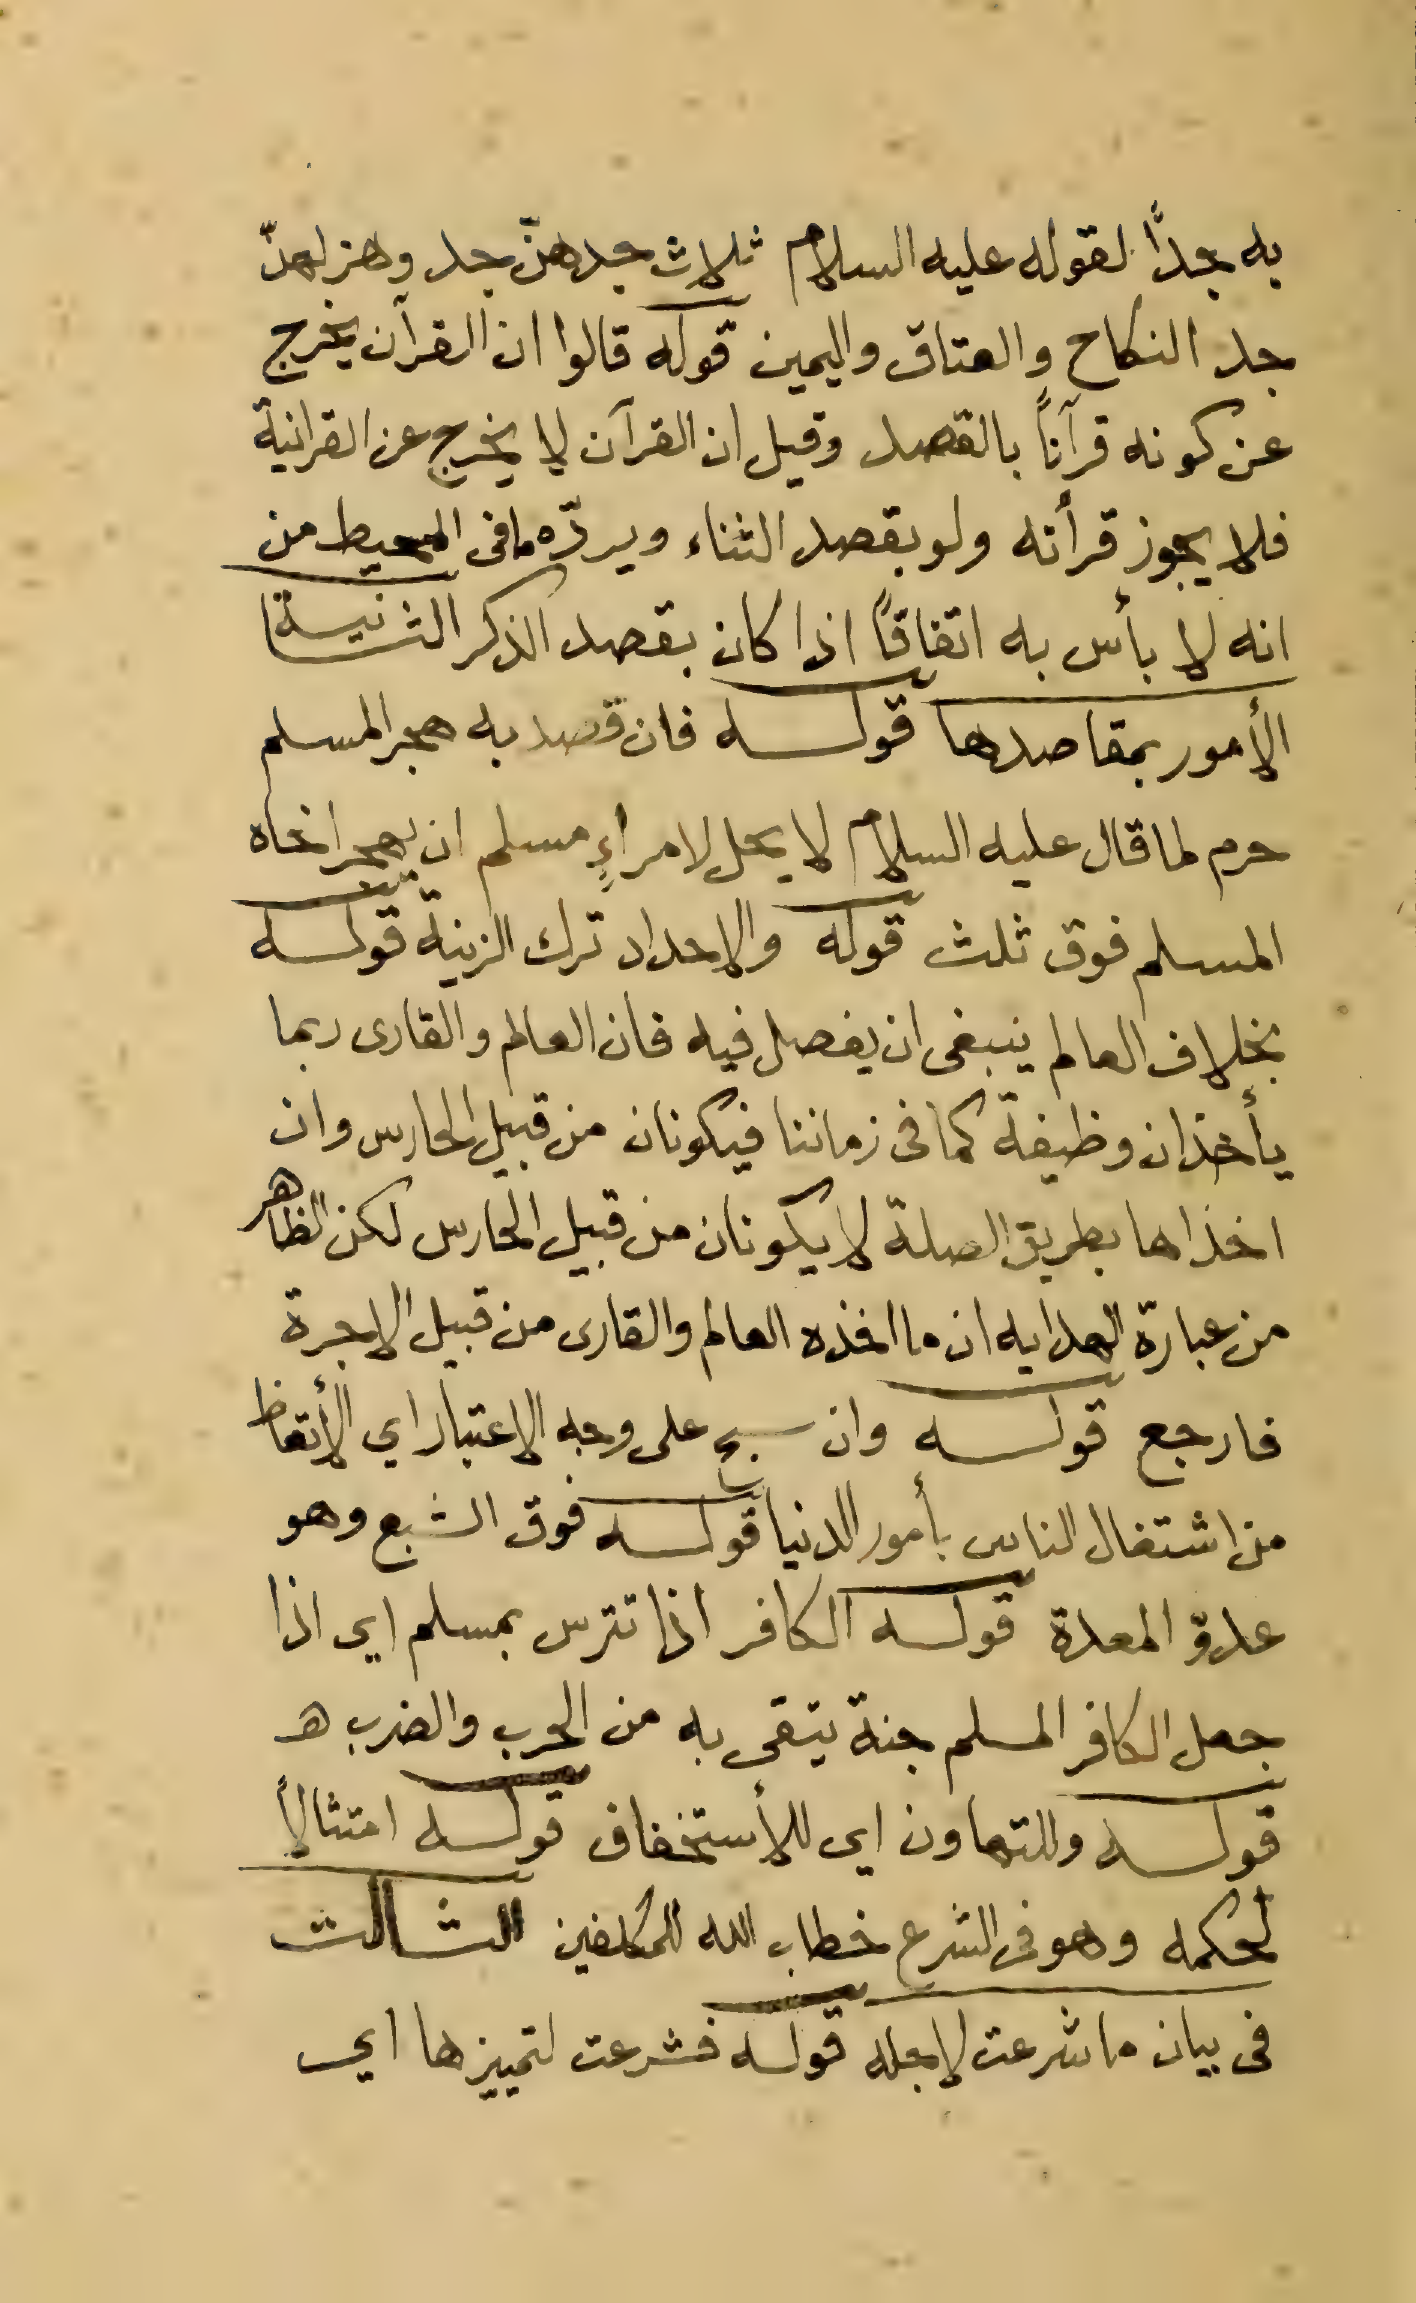 به جدًّا لقوله عليه السلام ثلاث جدهنّ جد وهزلهنّ
جد النكاح والعتاق واليمين قوله قالوا ان القرآن يخرج
عن كونه قرآناً بالقصد وقيل ان القرآن لا يخرج عن القرانية
فلا يجوز قرأته ولو بقصد الثناء ويردّه ما فى المحيط من
انه لا بأس به اتفاقاً اذا كان بقصد الذكر الثانية
الأمور بمقاصدها قوله فان قصد به هجر المسلم
حرم لما قال عليه السلام لا يحل لامراءٍ مسلم ان يهجر اخاه
المسلم فوق ثلث قوله والاحداد ترك الزينة قوله
بخلاف العالم ينبغى ان يفصل فيه فان العالم والقارى ربما
يأخذان وظيفة كما فى زماننا فيكونان من قبيل الحارس وان
اخذاها بطريق الصلة لا يكونان من قبيل الحارس لكن الظاهر
من عبارة الهدايه ان ما اخذه العالم والقارى من قبيل الاجرة
فارجع قوله وان سبح على وجه الاعتبار اي الأتعاظ
من اشتغال الناس بأمور الدنيا قوله فوق الشبع وهو
عدوّ المعدة قوله الكافر اذا تترس بمسلم اى اذا
جعل الكافر المسلم جنة يتقى به من الحرب والضرب ه
قوله وللتهاون اى للأستخفاف قوله امتثالاً
لحكمه وهو فى الشرع خطاب الله للمكلفين الثالث
فى بيان ما شرعت لاجله قوله فشرعت لتمييزها اي